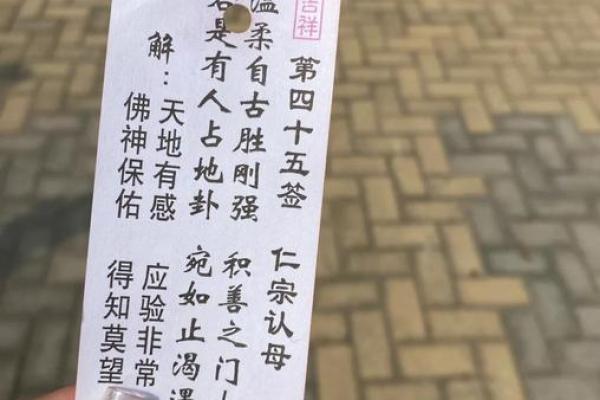 吉祥
第四十五签 仁宗认母
温柔自古胜刚强 积善之门
是有人占地卦 宛如止渴
解：天地有感 应验非常
佛神保佑 得知莫望